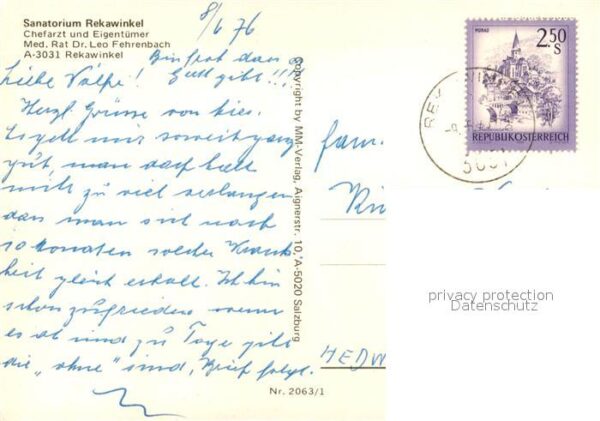 Sanatorium Rekawinkel
Chefarzt und Eigentümer
Med. Rat Dr. Leo Fehrenbach
A-3031 Rekawinkel
8/6 76
Bin froh das
Gott gibt!!!
Liebe
Herzl. Grüsse von hier.
Es geht mir soweit ganz
gut, man darf halt
nicht zu viel verlangen
dass man sich nach
10 Monaten solcher Krank
heit gleich erholt. Ich bin
schon zufrieden wenn
es ab und zu Tage gibt
die "ohne" sind, Brief folgt.
Copyright by MM-Verlag, Aignerstr. 10, A-5020 Salzburg
Nr. 2063/1
Fam.
HEDW
PÜRGG
2.50
S
REPUBLIK ÖSTERREICH
privacy protection
Datenschutz